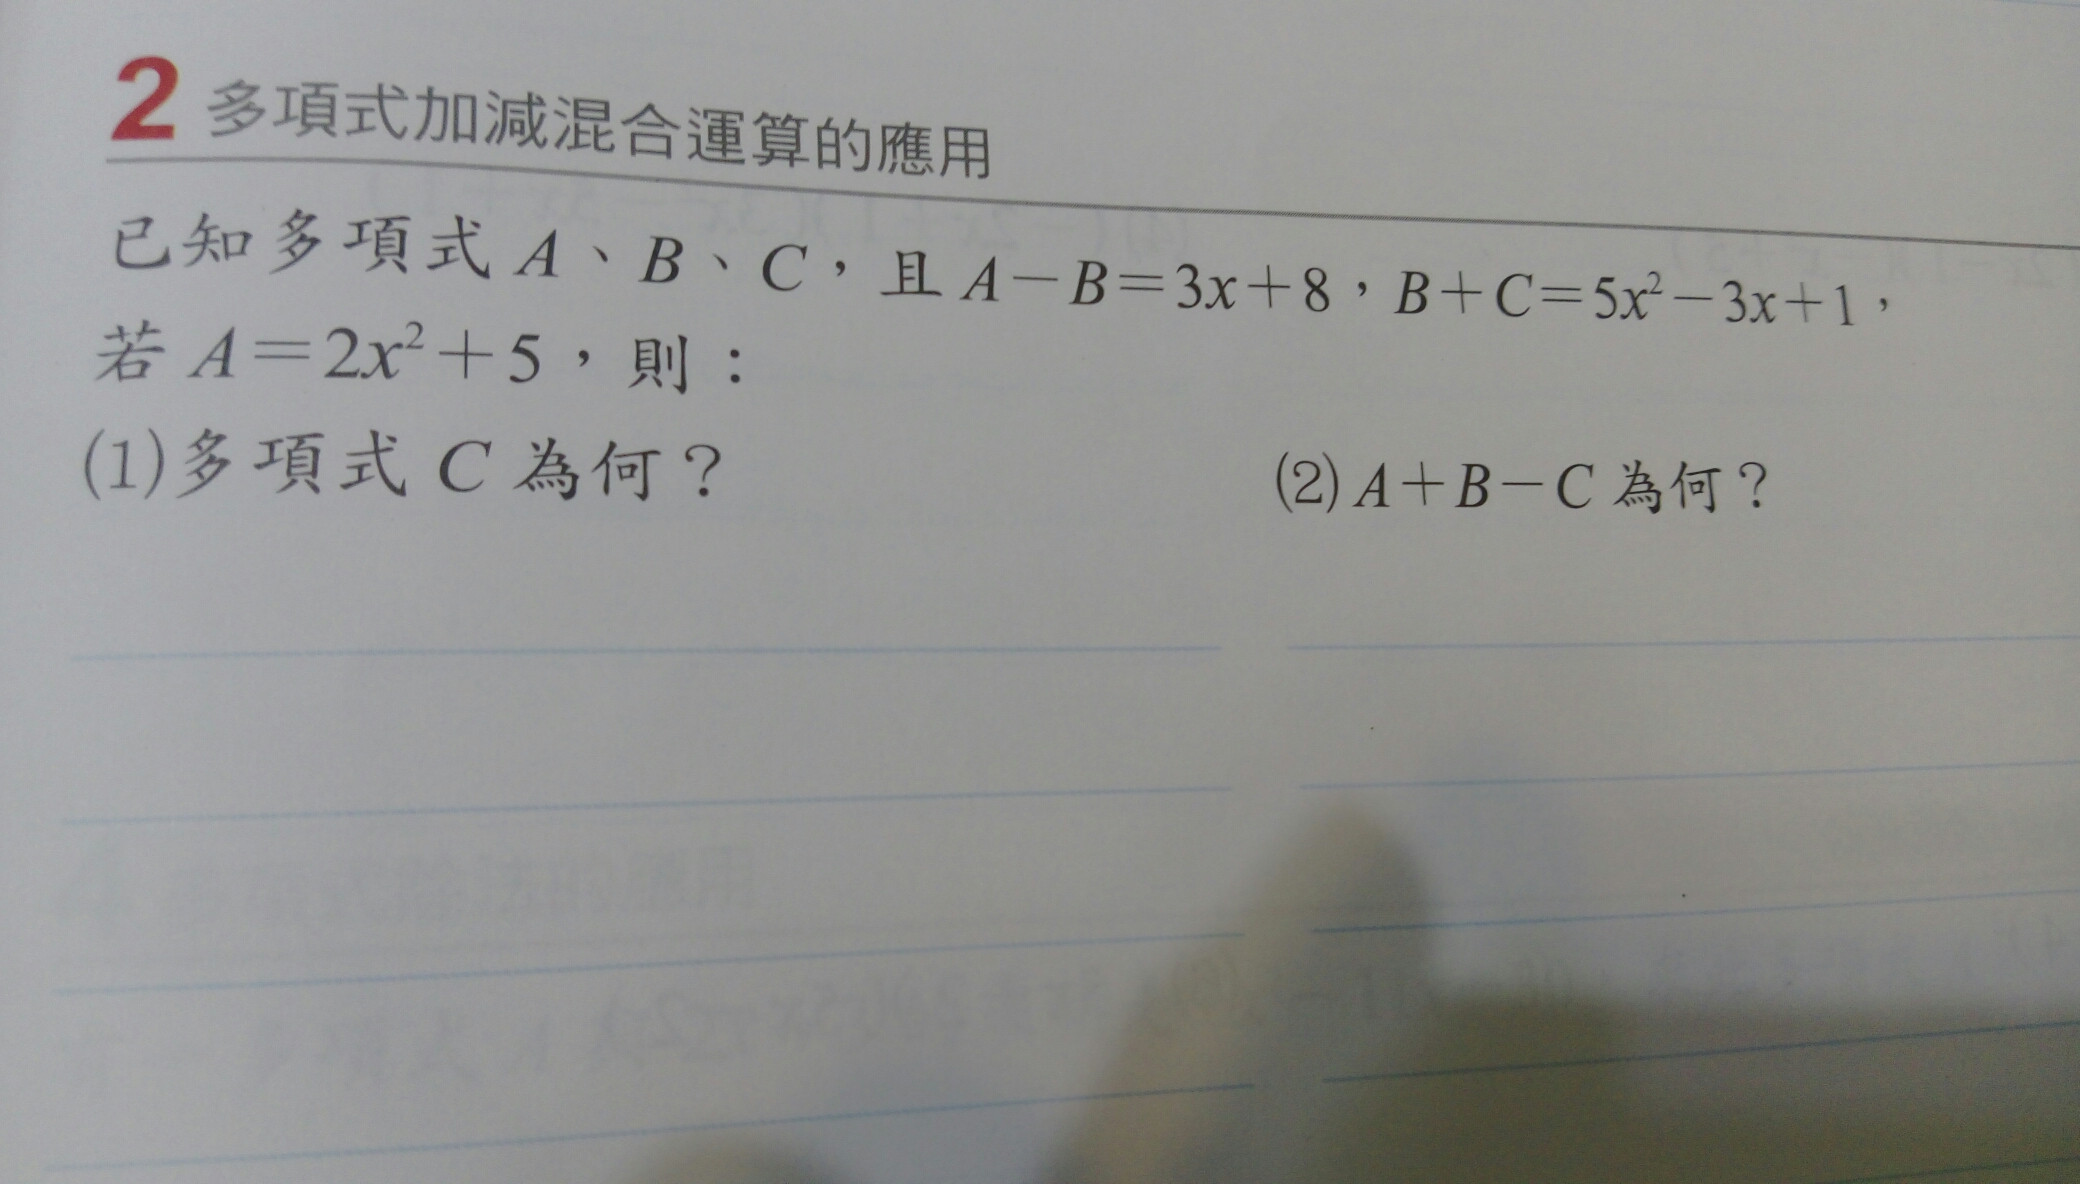 2 多項式加減混合運算的應用
已知多項式 A、B、C，且 A－B＝3x＋8，B＋C＝5x²－3x＋1，
若 A＝2x²＋5，則：
(1)多項式 C 為何？ (2) A＋B－C 為何？